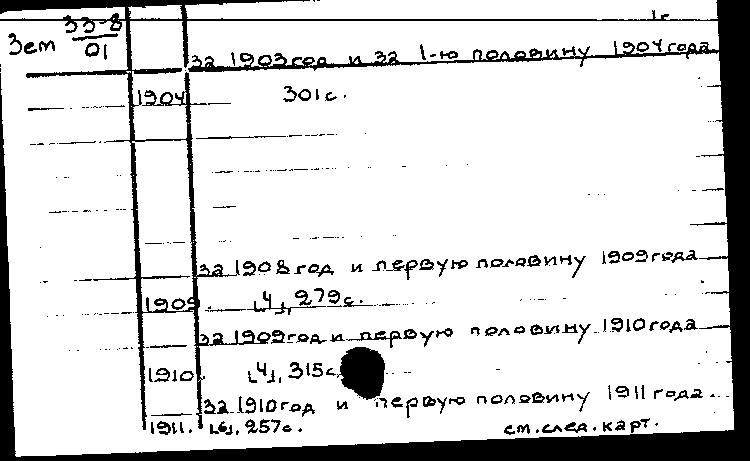 1г
Зем 33-8/01
за 1903 год и за 1-ю половину 1904 года
1904 301 с.
за 1908 год и первую половину 1909 года
1909. [4], 279 с.
за 1909 год и первую половину 1910 года
1910. [4], 315 с.
за 1910 год и первую половину 1911 года.
1911. [6], 257 с. см. след. карт.